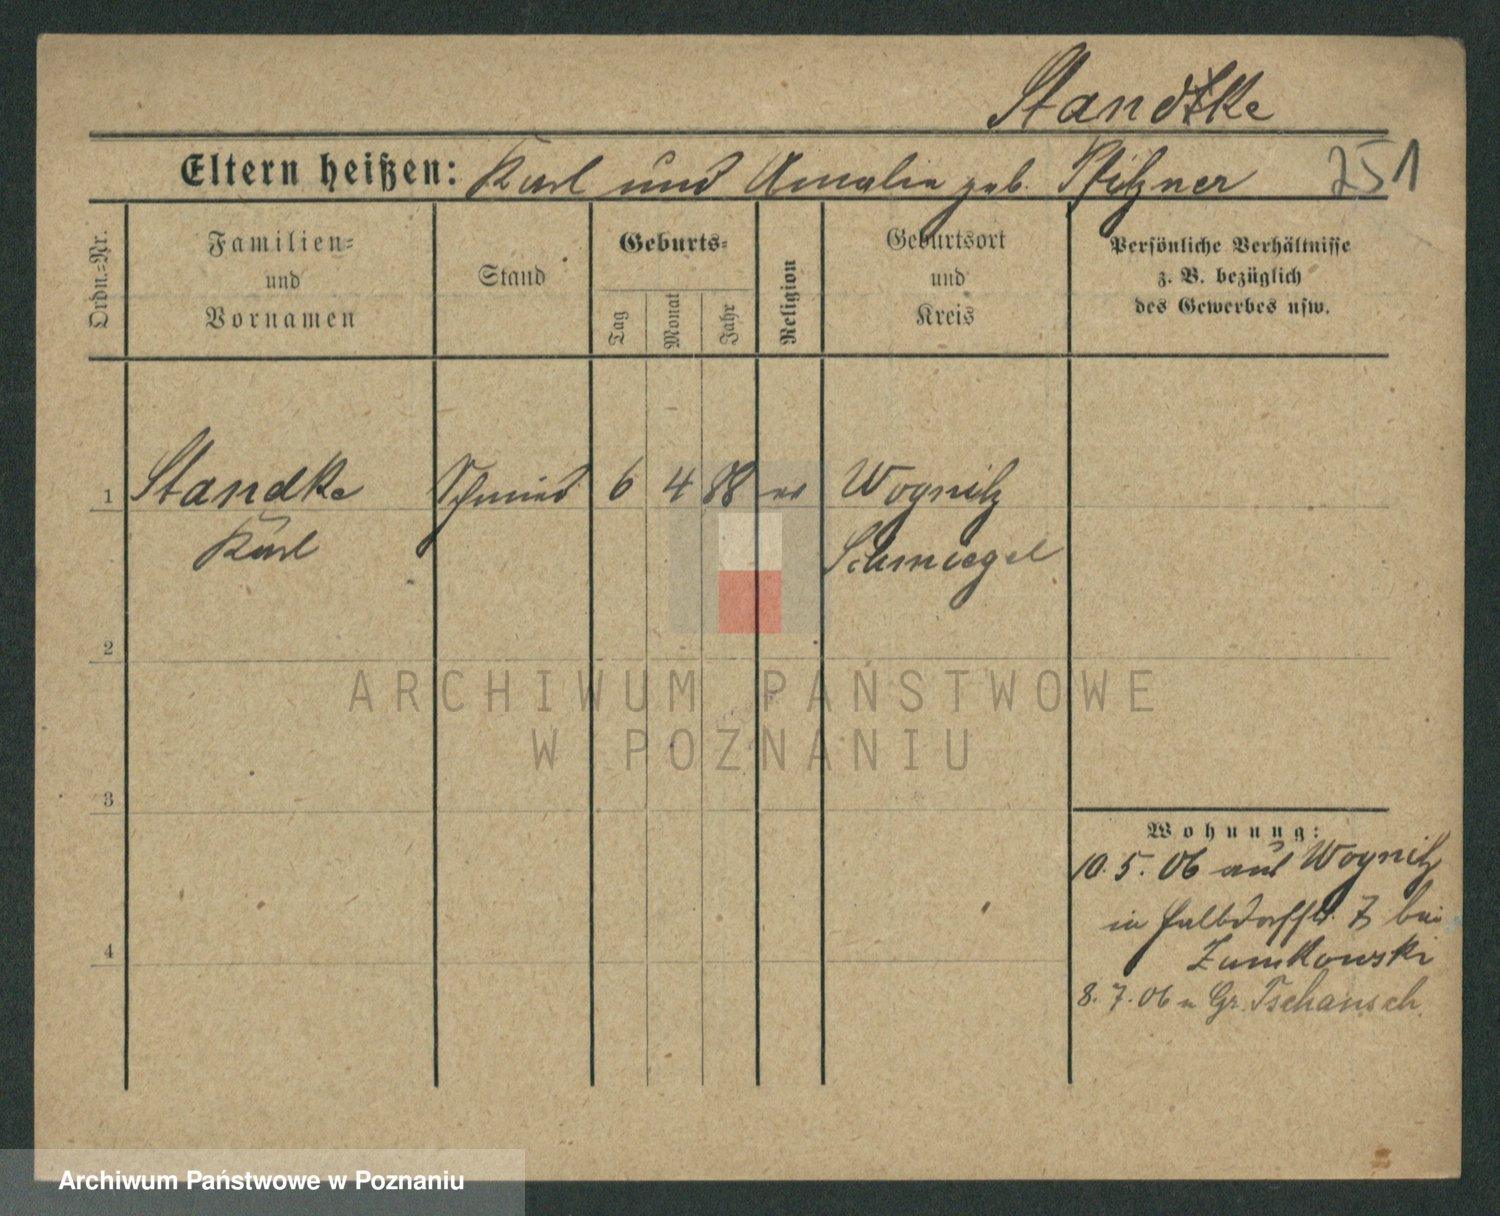 Standtke
Eltern heißen: Karl und Amalie geb. Pilzner 251
Ordn.=Nr.
Familien=
und
Vornamen
Stand
Geburts=
Tag
Monat
Jahr
Religion
Geburtsort
und
Kreis
Persönliche Verhältnisse
z. B. bezüglich
des Gewerbes usw.
1 Standke Schmied 6 4 88 ev Woynitz
Karl Schmiegel
2
ARCHIWUM PAŃSTWOWE
W POZNANIU
3
Wohnung:
10. 5. 06 aus Woynitz
in 7 bei
Zumkowski
4
8. 7. 06 n Gr. Tschansch
Archiwum Państwowe w Poznaniu